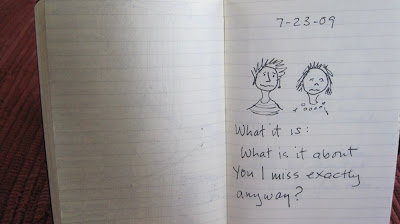 7-23-09
What it is:
What is it about
You I miss exactly
anyway?